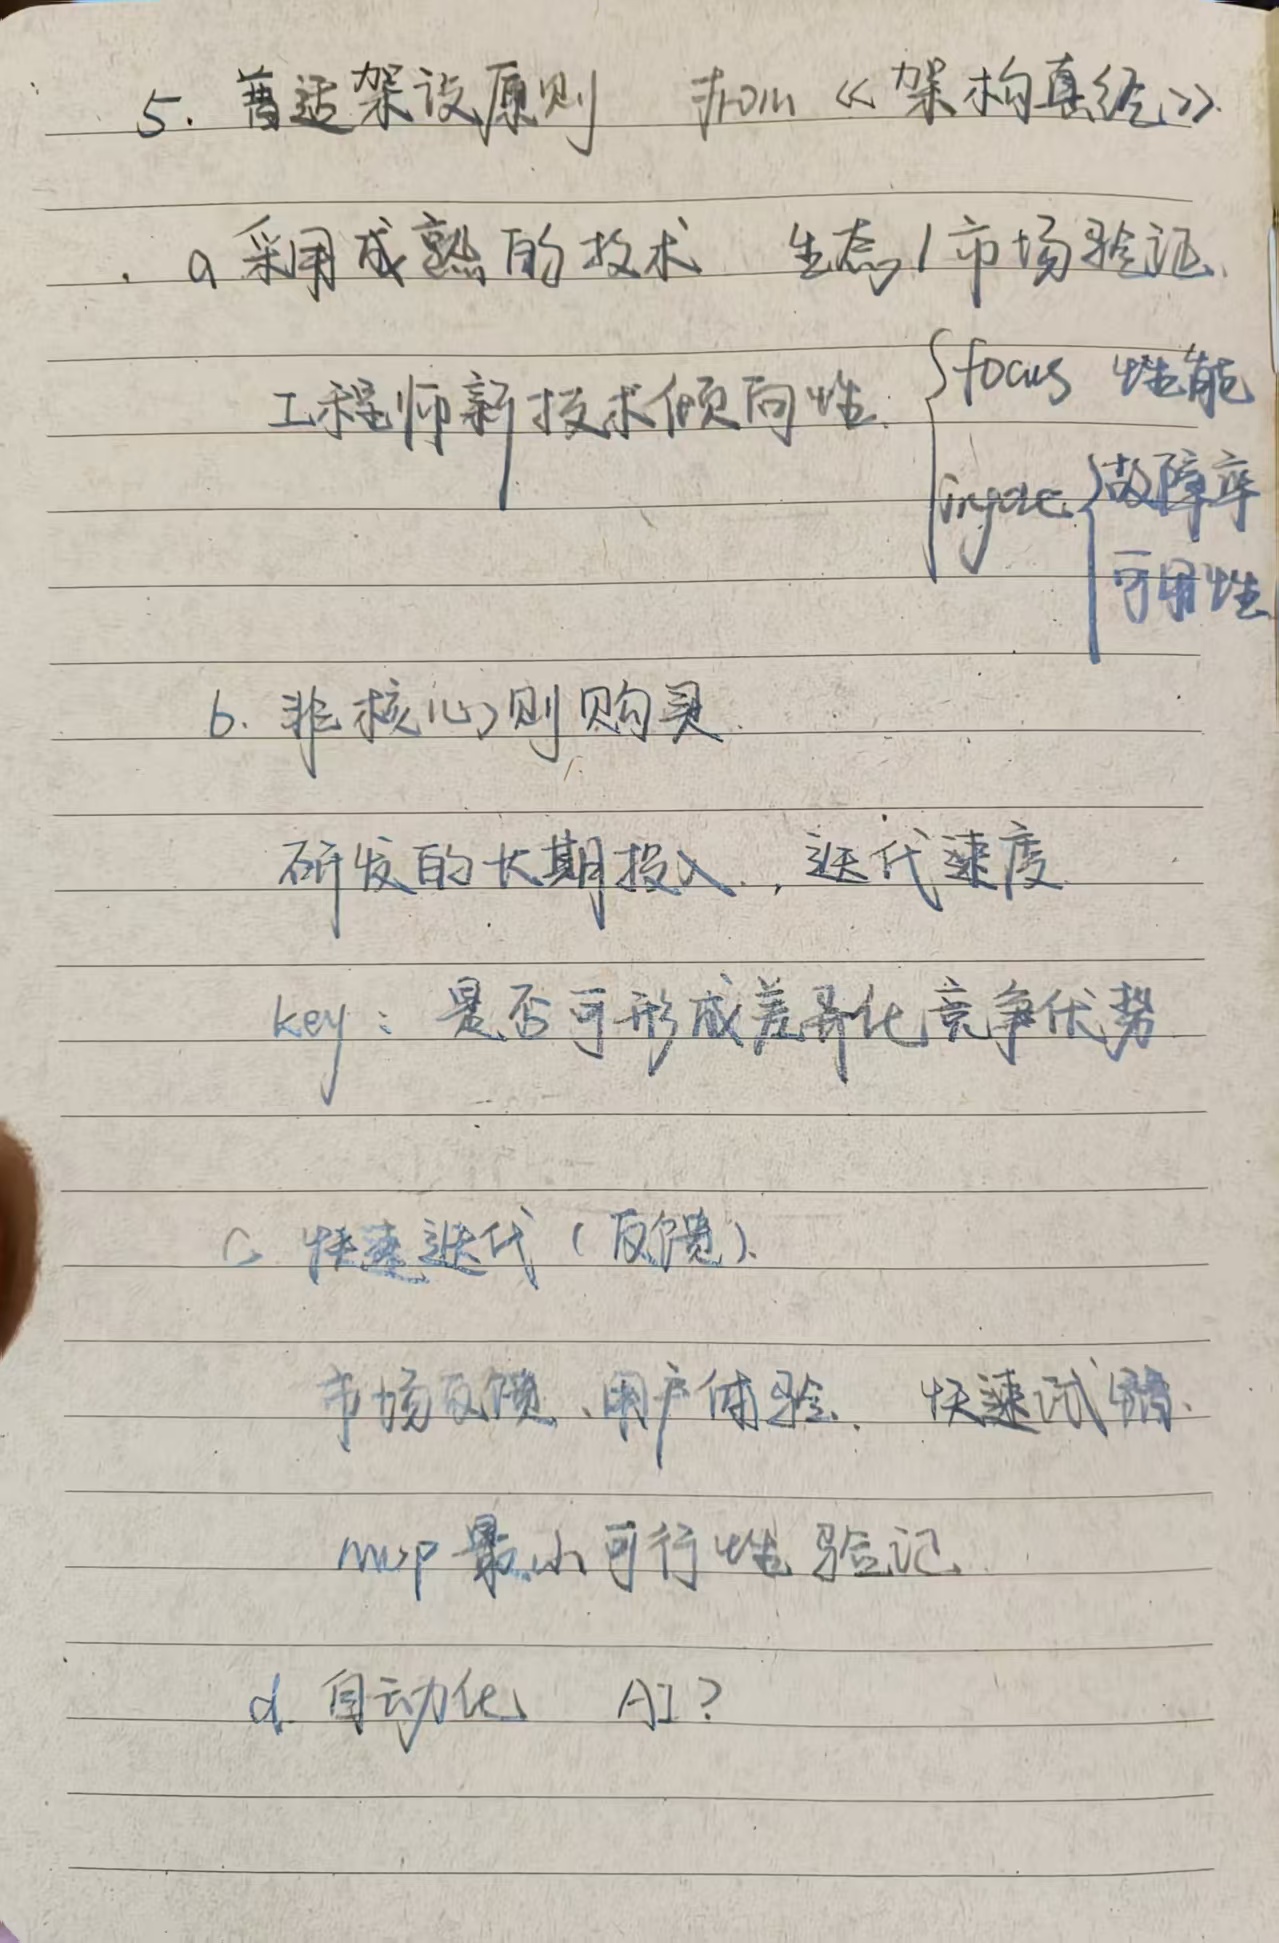 5. 普适架设原则 from《架构真经》
a 采用成熟的技术 生态/市场验证.
工程师新技术倾向性. focus 性能
ingore. 故障率
可用性
b. 非核心则购买.
研发的长期投入., 迭代速度
key: 是否可形成差异化竞争优势
c 快速迭代(反馈).
市场反馈、用户体验. 快速试错.
mvp 最小可行性验证
d. 自动化 AI?